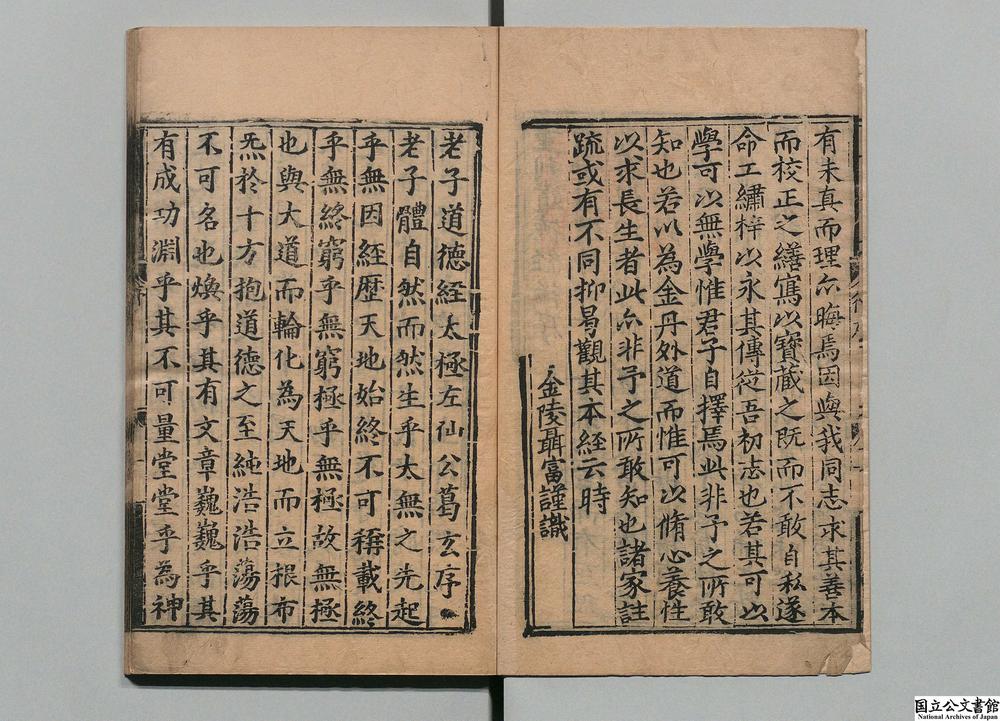 有未真而理亦晦焉因與我同志求其善本
而校正之繕寫以寶藏之既而不敢自私遂
命工繡梓以永其傳從吾初志也若其可以
學可以無學惟君子自擇焉此非予之所敢
知也若以為金丹外道而惟可以脩心養性
以求長生者此亦非予之所敢知也諸家註
疏或有不同抑曷觀其本經云時
金陵聶富謹識
老子道德經太極左仙公葛玄序
老子體自然而然生乎太無之先起
乎無因經歷天地始終不可稱載終
乎無終窮乎無窮極乎無極故無極
也與大道而輪化為天地而立根布
炁於十方抱道德之至純浩浩蕩蕩
不可名也煥乎其有文章巍巍乎其
有成功淵乎其不可量堂堂乎為神
国立公文書館
National Archives of Japan